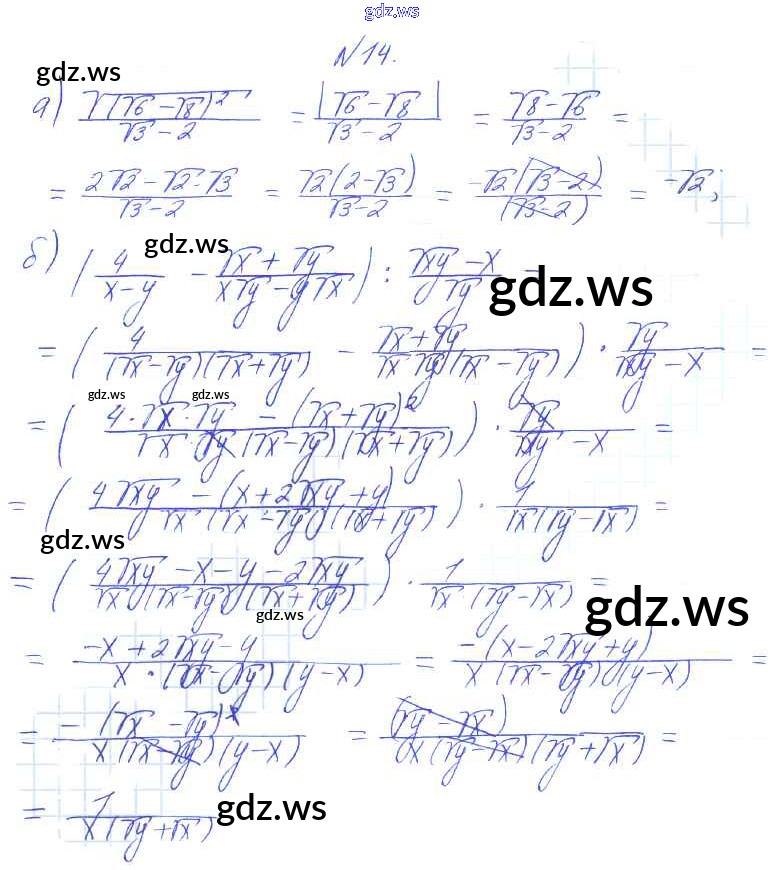 gdz.ws
№14.
gdz.ws
а) √((√6 − √8)²)/(√3 − 2) = |√6 − √8|/(√3 − 2) = (√8 − √6)/(√3 − 2) =
= (2√2 − √2·√3)/(√3 − 2) = √2(2 − √3)/(√3 − 2) = −√2(√3 − 2)/(√3 − 2) = −√2;
gdz.ws
б) (4/(x − y) − (√x + √y)/(x√y − y√x)) : (√xy − x)/√y =
gdz.ws
= (4/((√x − √y)(√x + √y)) − (√x + √y)/(√x √y(√x − √y))) · √y/(√xy − x) =
gdz.ws gdz.ws
= ((4·√x·√y − (√x + √y)²)/(√x·√y(√x − √y)(√x + √y))) · √y/(√xy − x) =
= ((4√xy − (x + 2√xy + y))/(√x(√x − √y)(√x + √y))) · 1/(√x(√y − √x)) =
gdz.ws
= ((4√xy − x − y − 2√xy)/(√x(√x − √y)(√x + √y))) · 1/(√x·(√y − √x)) =
gdz.ws
gdz.ws
= (−x + 2√xy − y)/(x·(√x − √y)(y − x)) = −(x − 2√xy + y)/(x(√x − √y)(y − x)) =
= −(√x − √y)²/(x(√x − √y)(y − x)) = (√y − √x)/(x(√y − √x)(√y + √x)) =
= 1/(x(√y + √x))
gdz.ws